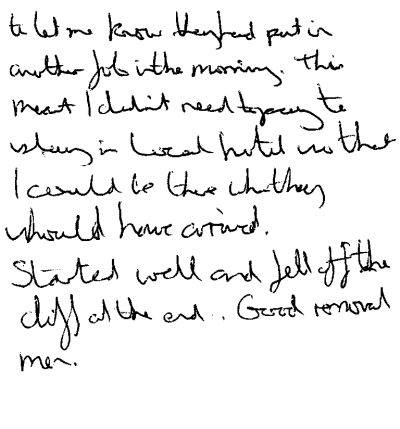 to let me know they had put in
another job in the morning. This
meant I didn't need to pay to
stay in local hotel so that
I could be there when they
should have arrived.
Started well and fell off the
cliff at the end. Good removal
men.